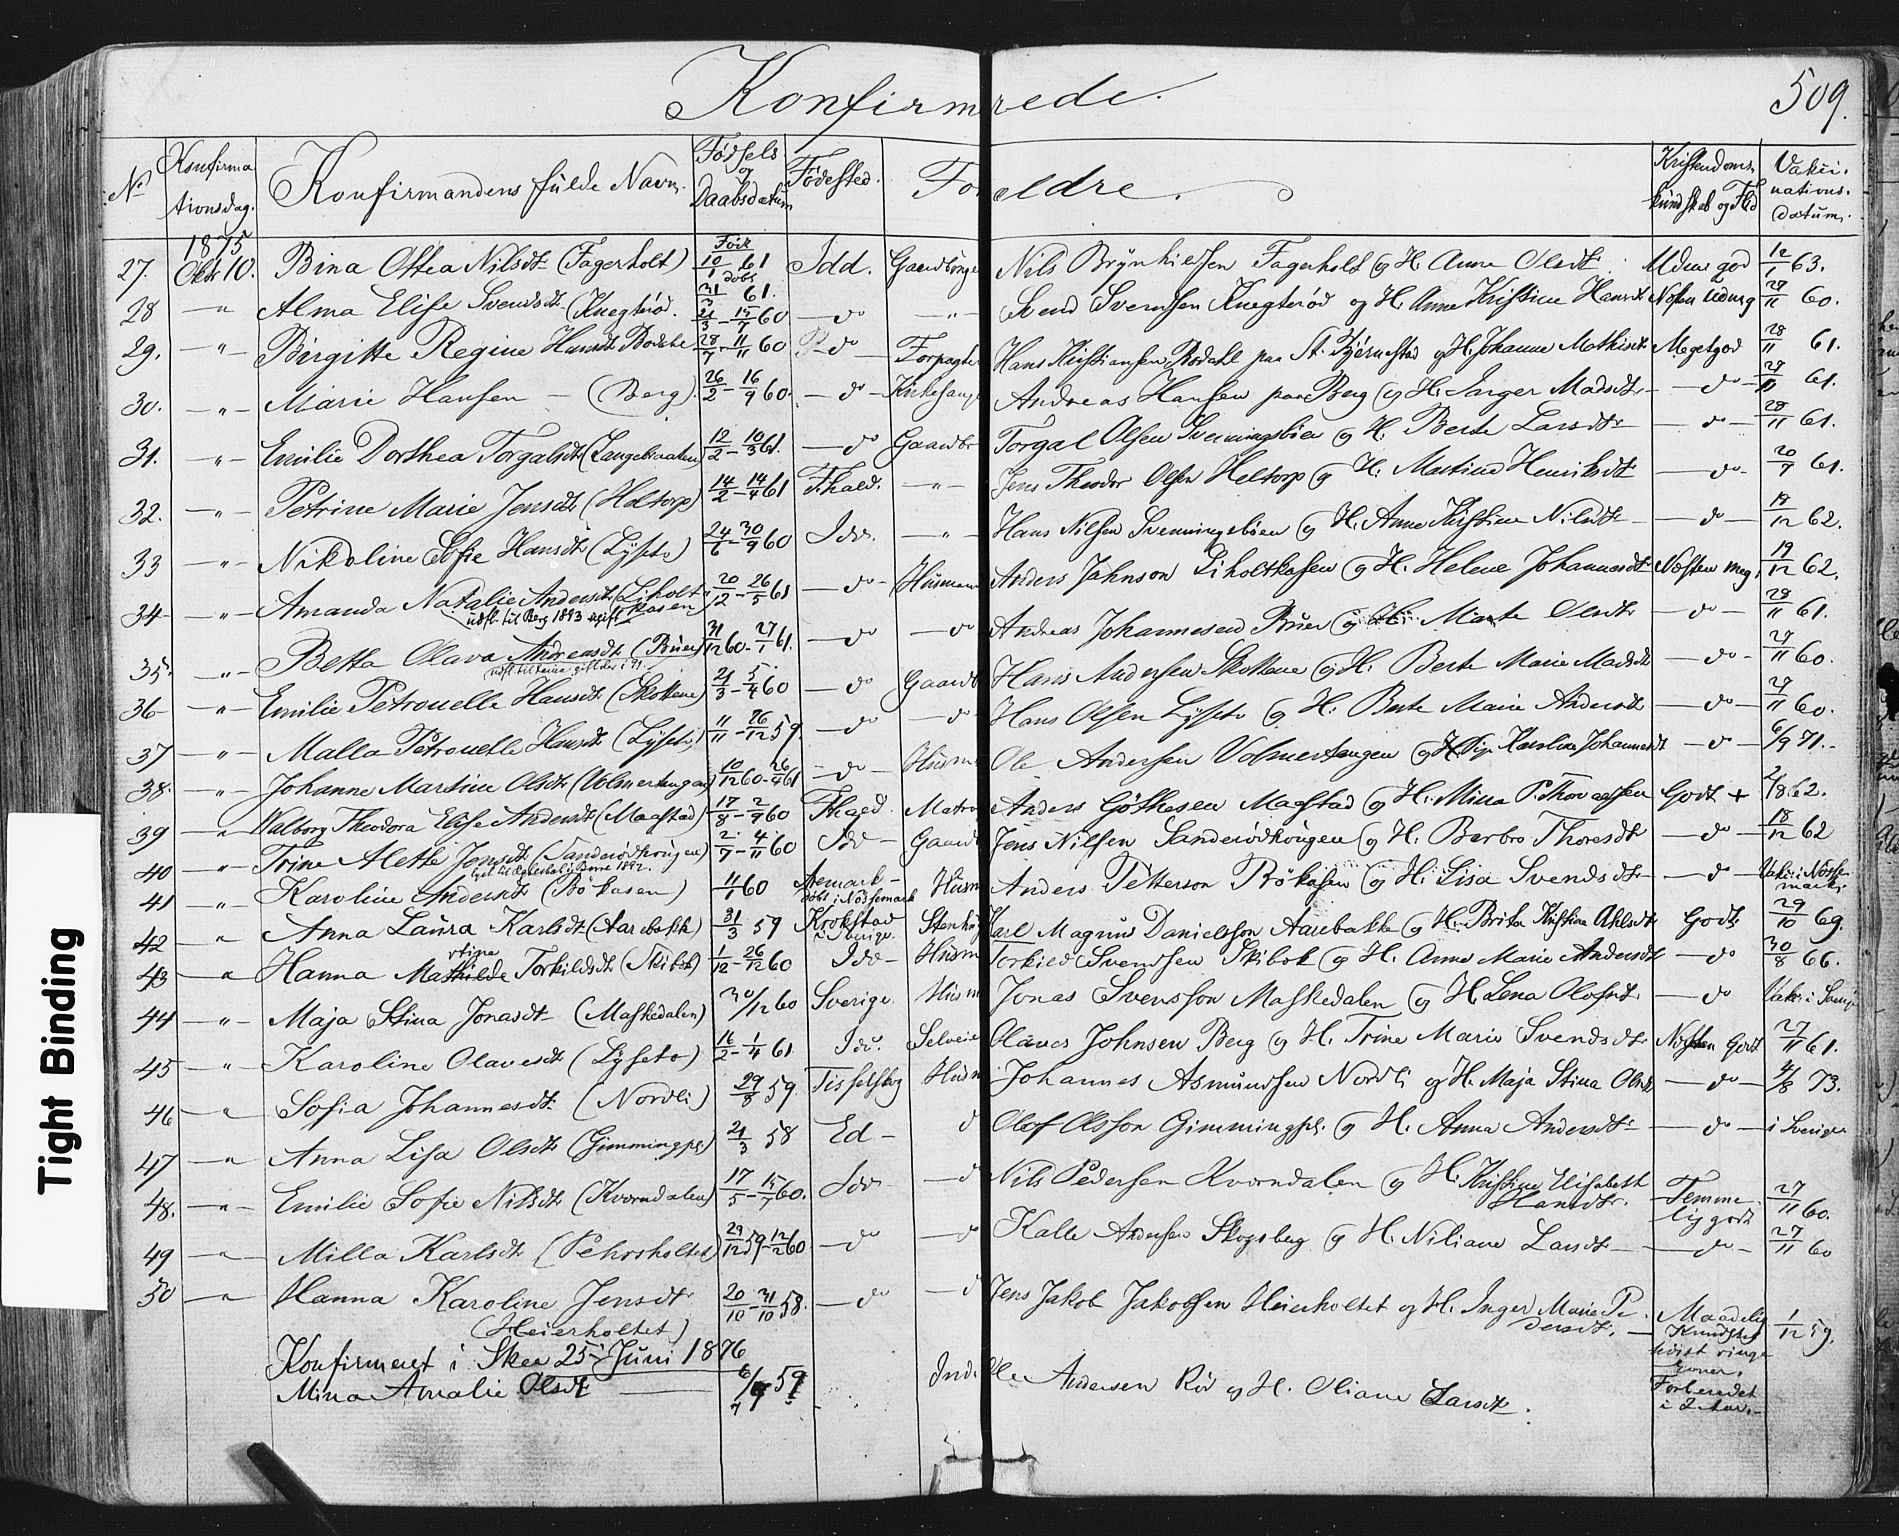 Konfirmrede.
509.
No
Konfirmationsdag.
Konfirmandens fulde Navn.
Fødsels og Daabsdatum
Fødested.
Fo eldre.
Kristendomskundskab og Flid
Vakcinationsdatum.
1875
27. Oktr 10. Bina Ottea Nilsdt (Fagerholt) Født 10/1 61 døbt 31/3 61. Idd. Gaardbruge Nils Brynhildsen Fagerholt og H. Anne Olsdt Udm. god 12/1 63.
28 — " Alma Elise Svendsdt (Knegterød. 21/3 – 15/7 60 — do — " — Svend Svendsen Knegterød og H. Anne Kristine Hansdt Næsten udmrg 27/11 60.
29. — " — Birgitte Regine Hansdt Bodahl 28/7 – 11/11 60 do Forpagter Hans Kristiansen Bodahl paa St. Bjørnestad og H. Johanne Mathisdt Meget god 28/11 61.
30. — " — Marie Hansen — (Berg) 26/2 – 16/9 60. — do — Kirkesang Andreas Hansen paa Berg og H. Inger Madsdt — do — 27/11 61.
31. — " — Emilie Dorthea Torgalsdt (Langebraaten) 12/2 – 10/3 61. — do Gaardbr Torgal Olsen Svenningsbøen og H. Berte Larsdtr — do — 28/11 61.
32. — " — Petrine Marie Jensdt (Heltorp) 14/2 – 14/4 61 Fhald. — " — Jens Theodor Olsen Heltorp og H. Martine Henriksdt — do — 20/7 61.
33 — " — Nikoline Sofie Hansdt (Lysetr) 24/6 – 30/9 60 Idd. — " — Hans Nilsen Svenningsbøen og H. Anne Kristine Nilsdt — do — 19/12 62.
34 — " — Amanda Natalie Andersdt (Liholtkasen) 20/12 – 26/5 61 — do — Husman Anders Jahnson Liholtkasen og H. Helene Johannesdt Næsten meg. 19/12 62.
udfl. til Berg 1893 ugift
35. — " — Betta Olava Andreasdt (Buer) 31/12 60 – 27/1 61. — do — do Andreas Johannesen Buer og H. Marte Olsdt — do — 28/11 61.
36 — " — Emilie Petronelle Hansdt (Skokene) 21/3 – 5/4 60 — do Gaardb Hans Andersen Skokene og H. Berte Marie Madsdt — do — 27/11 60.
37 — " — Malla Petronelle Hansdt (Lysetr) 11/11 – 26/12 59. — do — do — Hans Olsen Lysetr og H. Berte Marie Andersdt — do — 27/11 60.
38. — " — Johanne Martine Olsdt (Volmertangen) 10/12 60 – 26/4 61 — do — Husm Ole Andersen Volmertangen og Pige Karoline Johannesdt — do — 6/9 71.
39 — " Valborg Theodora Elise Andersdt (Maastad) 17/8 – 2/9 60 Fhald. Matro Anders Göthesen Maastad og H. Mina P. Thoraesen Godt + 2/8 62.
40 — " — Trine Alette Jensdt (Sanderødkrogen) 2/7 – 4/11 60 Idd — Gaardb Jens Nilsen Sanderødkrogen og H. Berbro Thoresdt — do — 18/12 62
41 — " — Karoline Andersdt (Bøkasen) 4/1 60 Aremark — døbt i Nössemark Husm Anders Petterson Bökasen og H. Lisa Svendsdt — do — Vakc. i Nössemark.
42 — " Anna Laura Karlsdt (Aarebakk) 31/3 59 Krokstad i Sverige. Stenhug Karl Magnus Danielson Aarebakke og H. Brita Kristine Ahlsdt Godt 29/10 69.
43 — " Hanna Mathilde Torkildsdt (Skibok) 1/12 – 26/12 60 Idd — Husm Torkild Svendsen Skibok og H. Anne Marie Andersdt — do 30/8 66.
rtine
44 — " — Maja Stina Jonasdt — (Maskedalen) 30/12 60 Sverige. Husm Jonas Svensson Maskedalen og H. Lena Olofsdt — do Vakc. i Sverige
45 — " — Karoline Olavesdt (Lysetr) 16/2 – 1/4 61 Idd. Selveier Olaves Johnsen Berg og H. Trine Marie Svendsdt Næsten Godt 27/11 61.
46 — " Sofia Johannesdt. (Nordli) 29/8 59. Tisselskog Husm Johannes Asmundsen Nordli og H. Maja Stina Olsdt — do — 4/8 73.
47 — " Anna Lisa Olsdt (Gimmingpl) 21/3 58 Ed — d Olof Olsson Gimmingpl. og H. Anna Andersdt — do — i Sverige
48. — " — Emilie Sofie Nilsdt (Kværndalen) 17/5 – 15/7 60. Idd — d Nils Pedersen Kværndalen og H. Kristine Elisabeth Hansdtr. Temmelig godt 27/11 60.
49 — " — Milla Karlsdt (Pehrsholtet) 29/12 59 – 12/2 60 — do — do Kalle Andersen Skogsberg og H. Niliane Larsdt — do — 27/11 60
50 — " Hanna Karoline Jensdt (Heierholtet) 20/10 – 31/10 58. — do — d Jens Jakob Jakobsen Heierholtet og H. Inger Marie Pedersdt. — Maadelig Kundskab høist ringe Evner. Forberedet i 2 Aar. 1/12 59.
Konfirmeret i Skee 25de Juni 1876
Mina Amalie Olsdt — 59 Indr Ole Andersen Rød og H. Oliane Larsdt.
Tight Binding